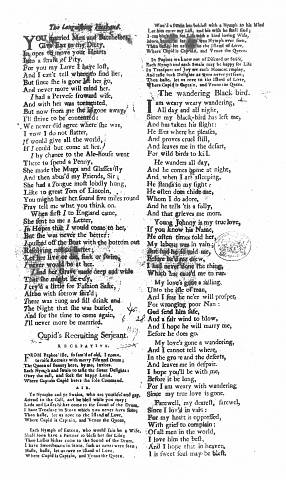 The Languishing Husband.
YOU married Men and Batchelors,
Give Ear to my Ditty,
In open to move your Hearts
Into a strain of Pity.
For you my Love I have lost,
And I can't tell where to find her,
But since she is gone let her go,
And never more will mind her.
I had a Perverse froward wife,
And with her was tormented,
But now from me she is gone away
I'll strive to be contented;
We never did agree where she was,
I vow I do not flatter,
I'd would give all the world,
If I could but come at her.
If by chance to the Ale-house went
There to spend a Penny,
She made the Mugs and Glasses fly
And then abus'd my Friends, Sir;
She had a Tongue most loudly hung,
Like to great Tom of Lincoln,
You might hear her sound five miles round
Pray tell me what you think on.
When first I to England came,
She sent to me a Letter,
In Hopes that I would come to her,
But she was never the better;
I pushed off the Boat with the bottom out
Let her live or die, sick or swim,
I cry'd a little for Fashion Sake,
Altho with sorrow fore'd;
There was nung and fill drink and
The Night that she was buried,
And for the time to come again
I'll never more be married.
Cupid's Recruiting Serjeant.
RECITATIVE.
FROM Paphos' Isle, so fam'd of old, I come,
to raise Recruits with merry Fife and Drum;
The Queen of Beauty here, by me, invites
Each Nymph and Swain to taste the sweet Delights;
Obey the call, and seek the happy Land,
Where Captain Cupid bears the sole Command.
AIR.
Ye Nymphs and ye Swains, who are youthful and gay,
Attend to the Call, and be blest while you may;
Lads and Lasses hither come to the sound of the Drum,
I have Treasure in Store which you never have seen;
Then haste, let us rove to the Island of Love,
Where Cupid is Captain, and Venus the Queen.
Each Nymph of Sixteen, who would fain be a Wife,
Shall soon have a Partner to bless her for Life;
Then Lasses hither come to the sound of the Drum,
I have Sweethearts in Store, such as never were seen;
Haste, haste, let us rove to the Island of Love,
Where Cupid's Captain, and Venus the Queen.
Wou'd a Swain be blessed with a Nymph to his Mind
Let him enter my List, and his with he shall find;
each Lad with a kind loving Wife,
Then haste, let us rove to the Island of Love,
Where Cupid is Captain, and Venus the Queen.
In Paphos we know of no Discord or Strife,
Each Nymph and each Swain may be happy for Life
In Transport and Joy we each Moment employ,
And taste such Delights as were never seen;
Then haste, let us rove to the Island of Love,
Where Cupid is Captain, and Venus the Queen.
The wandering Black bird.
I am weary weary wandering,
All day and all night,
Since my black-bird has left me,
And has taken his flight:
He flies where he pleases,
And proves cruel still,
And leaves me in the desert,
For wild birds to kill.
He wanders all day,
And he comes home at night,
And when I am sleeping,
He stands in my sight;
He often does chide me,
Whom I do adore,
And he tells 'tis a folly,
And that grieves me more.
Young Johnny is my true love,
If you know his Name,
He often times told her,
My labour was in vain;
I had never done the thing,
Which has caus'd me to rue
My love's gone a sailing,
Unto the isle of man,
And I fear he ne'er will prosper,
For wronging poor Nan:
God send him safe,
And a fair wind to blow,
And I hope he will marry me,
Before he does go.
My love's gone a wandering,
And I cannot tell where,
In the grove and the desert,
And leaves me in despair.
I hope you'll be with joy,
Before it be long,
For I am weary with wandering
Since my true love is gone.
Farewell, my dearest, farewell,
Since I lov'd in vain:
For my heart is oppressed,
With grief to complain:
Of all men in the world,
I love him the best,
And I hope that in heaven,
I is sweet soul may be blest.